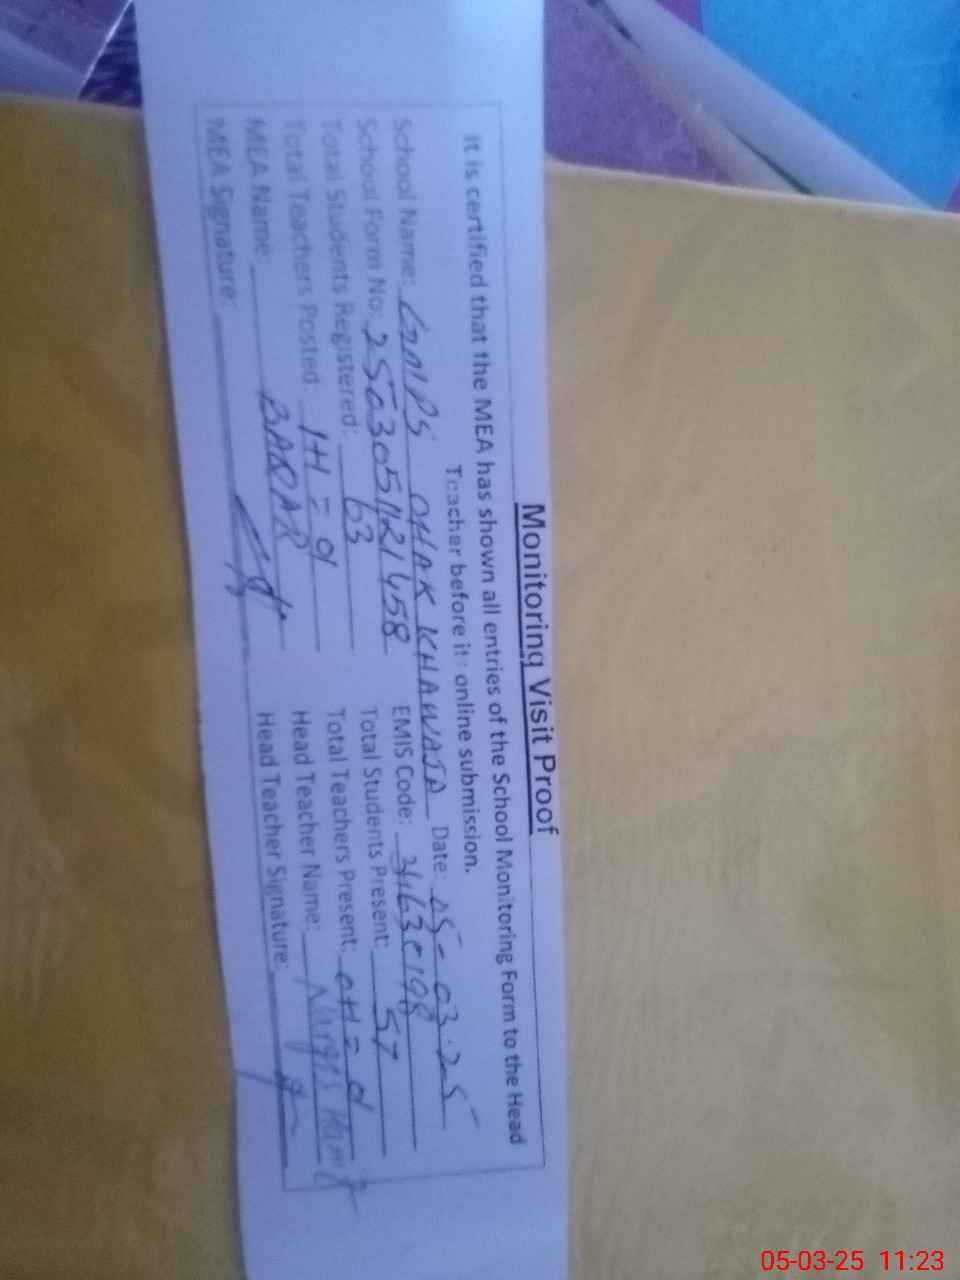 Monitoring Visit Proof
It is certified that the MEA has shown all entries of the School Monitoring Form to the Head
Teacher before its online submission.
School Name: GMPS CHAK KHAWAJA Date: 05-03-25
School Form No: 250305121458 EMIS Code:
Total Students Registered: 63 Total Students Present: 57
Total Teachers Posted: Total Teachers Present:
MEA Name: BABAR Head Teacher Name: Nargis
MEA Signature: Head Teacher Signature:
05-03-25 11:23